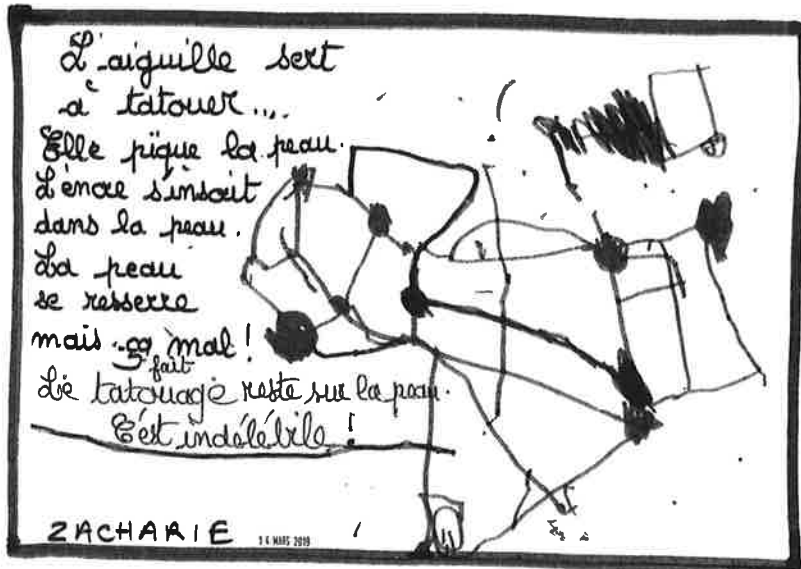 L'aiguille sert
à tatouer...
Elle pique la peau.
L'encre s'inscrit
dans la peau.
La peau
se resserre
mais ça fait mal !
Le tatouage reste sur la peau.
C'est indélébile !
ZACHARIE 14 MARS 2019